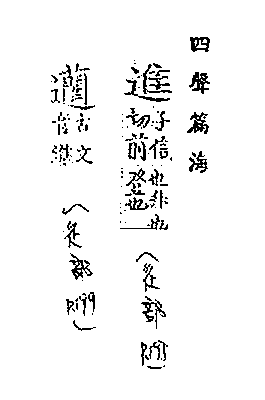 四聲篇海
進
子信
切前
也非也
登也
(辵部
P.195)
古文
音進
(辵部
P.199)